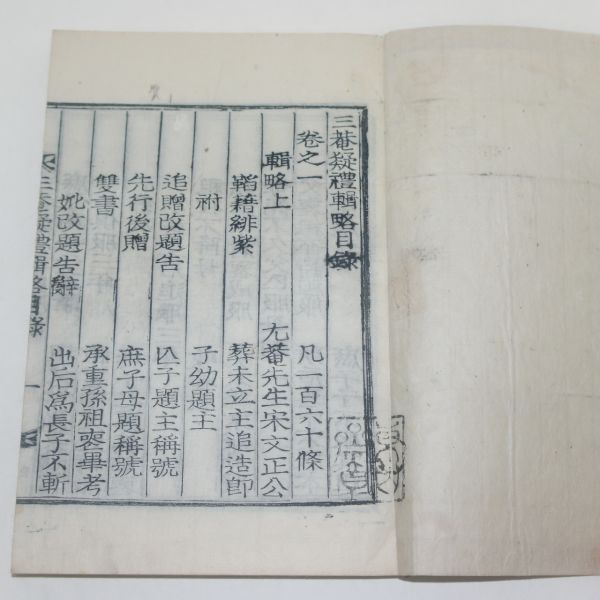 三菴疑禮輯略目錄
卷之一 凡一百六十條
輯略上 尤菴先生宋文正公
鞱藉緋紫 葬未立主追造卽
祔 子幼題主
追贈改題告 匹子題主稱號
先行後贈 庶子母題稱號
雙書 承重孫祖喪畢考
妣改題告辭 出后爲長子不斬
三菴疑禮輯略目錄 一